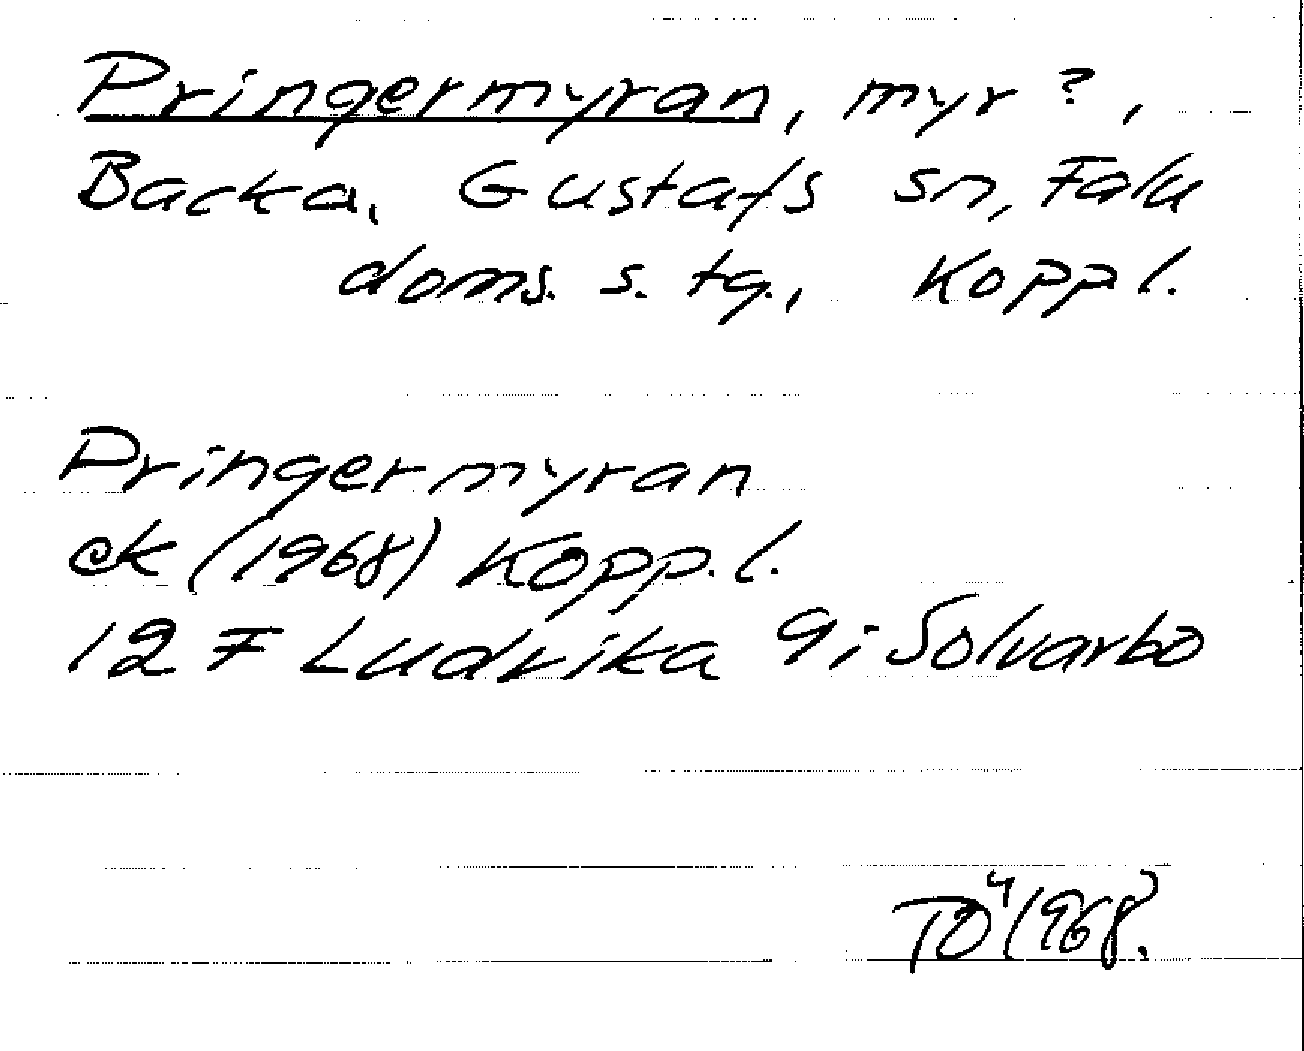 Pringermyran, myr?,
Backa, Gustafs sn, Falu
doms. s. tg., Kopp l.
Pringermyran
ek (1968) Kopp. l.
12 F Ludvika 9 i Solvarbo
TÖ 1968.